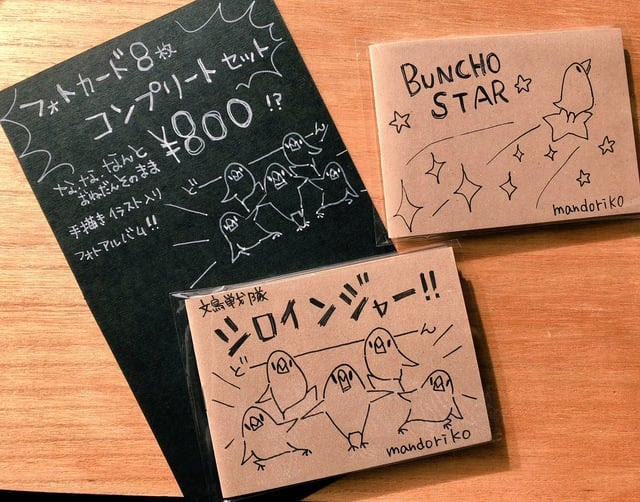 フォトカード8枚
コンプリートセット
¥800!?
な、な、なんと
おねだんそのまま
手描きイラスト入り
フォトアルバム!!
どーん
BUNCHO
STAR
mandoriko
文鳥戦隊
シロインジャー!!
どーん
mandoriko